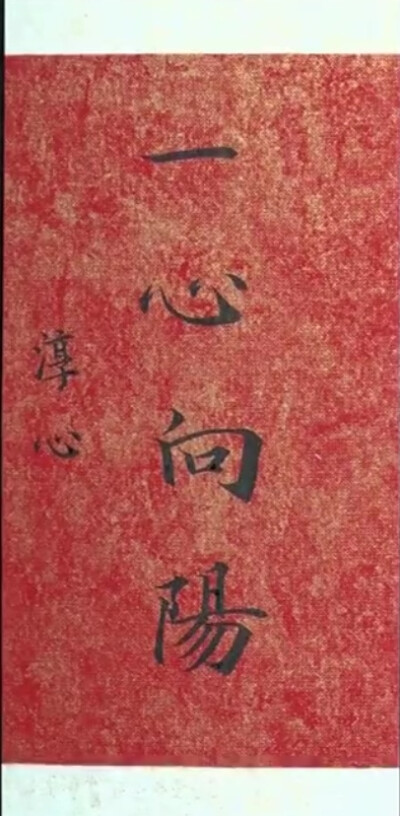 一心向陽
淳心